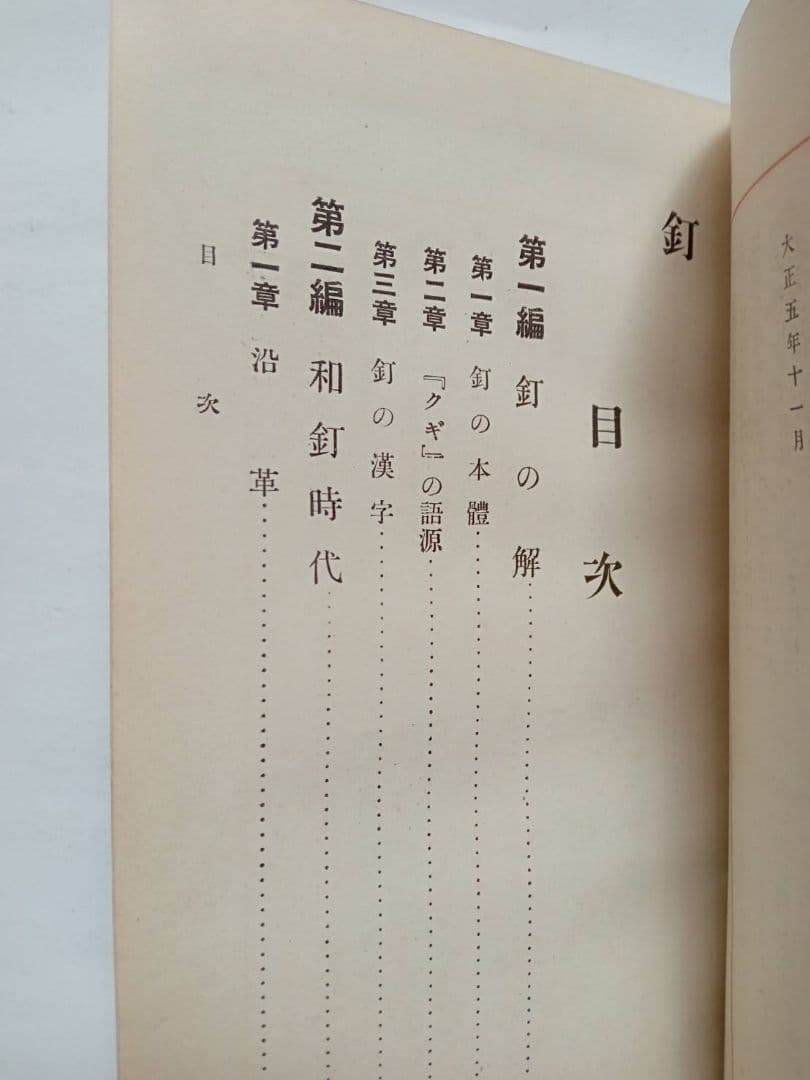 大正五年十一月
釘
目次
第一編 釘の解
第一章 釘の本體
第二章 『クギ』の語源
第三章 釘の漢字
第二編 和釘時代
第一章 沿革
目次